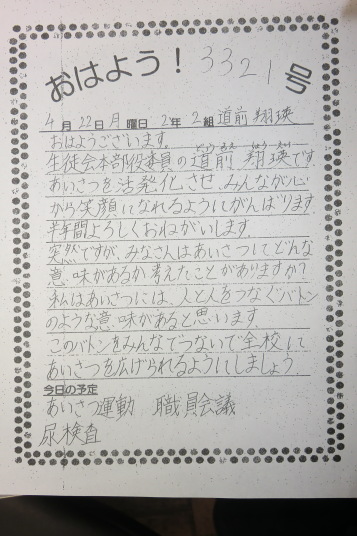 おはよう！ 3321 号
4月22日月曜日 2年2組 道前 翔瑛
おはようございます。
生徒会本部役委員の道前 翔瑛です。
あいさつを活発化させ、みんなが心
から笑顔になれるようにがんばります。
半年間よろしくおねがいします。
突然ですが、みなさんはあいさつにどんな
意味があるか考えたことがありますか？
私はあいさつには、人と人をつなぐバトン
のような意味があると思います。
このバトンをみんなでつないで全校に
あいさつを広げられるようにしましょう。
今日の予定
あいさつ運動 職員会議
尿検査